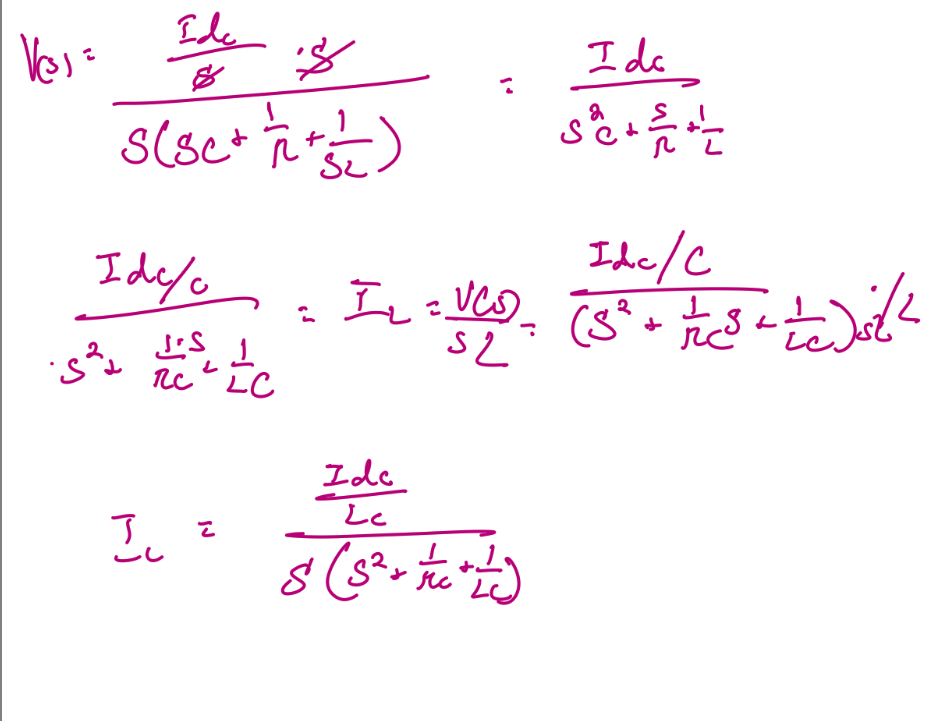 V(s) = (Idc/s · s) / (s(sC + 1/R + 1/sL)) = Idc / (s²C + s/R + 1/L)
(Idc/C) / (s² + 1·s/RC + 1/LC) = I_L = V(s)/sL = (Idc/C) / ((s² + 1/RC s + 1/LC) sL) ÷L
I_L = (Idc/LC) / (s(s² + 1/RC + 1/LC))